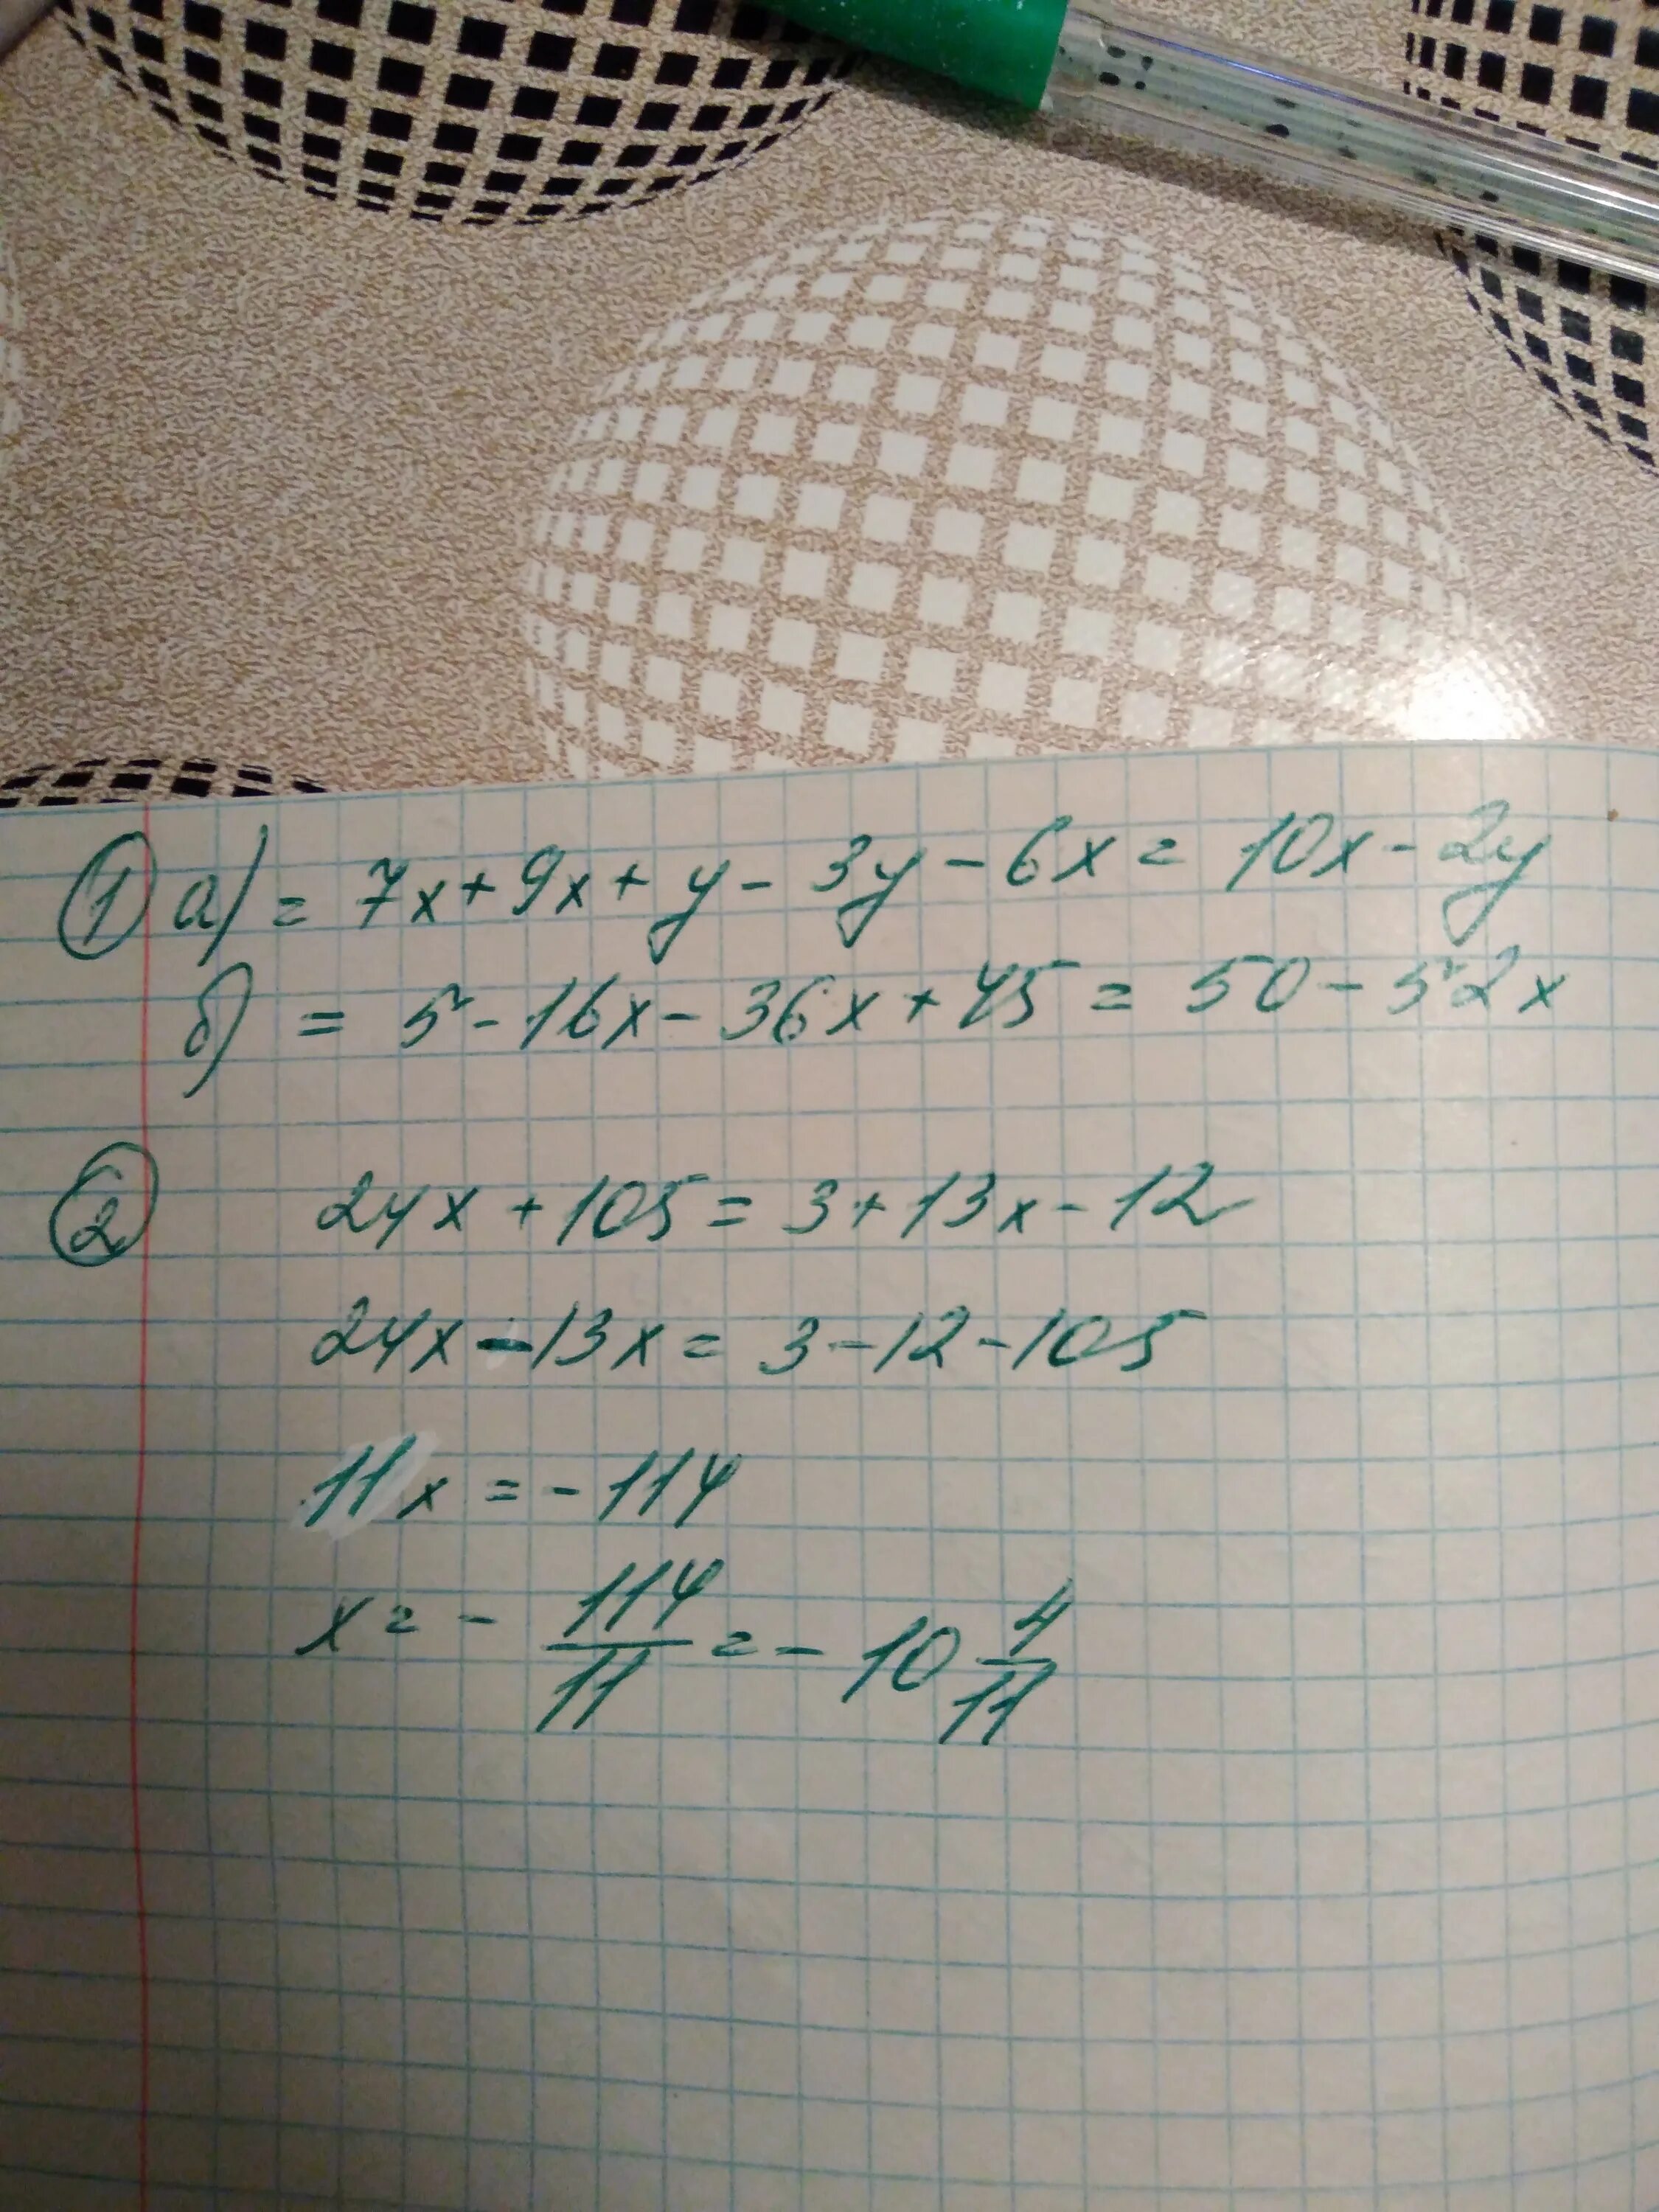 ① а) = 7x + 9x + y - 3y - 6x = 10x - 2y
б) = 5 - 16x - 36x + 45 = 50 - 52x
② 24x + 105 = 3 + 13x - 12
24x - 13x = 3 - 12 - 105
11x = - 114
x = - 114/11 = - 10 4/11